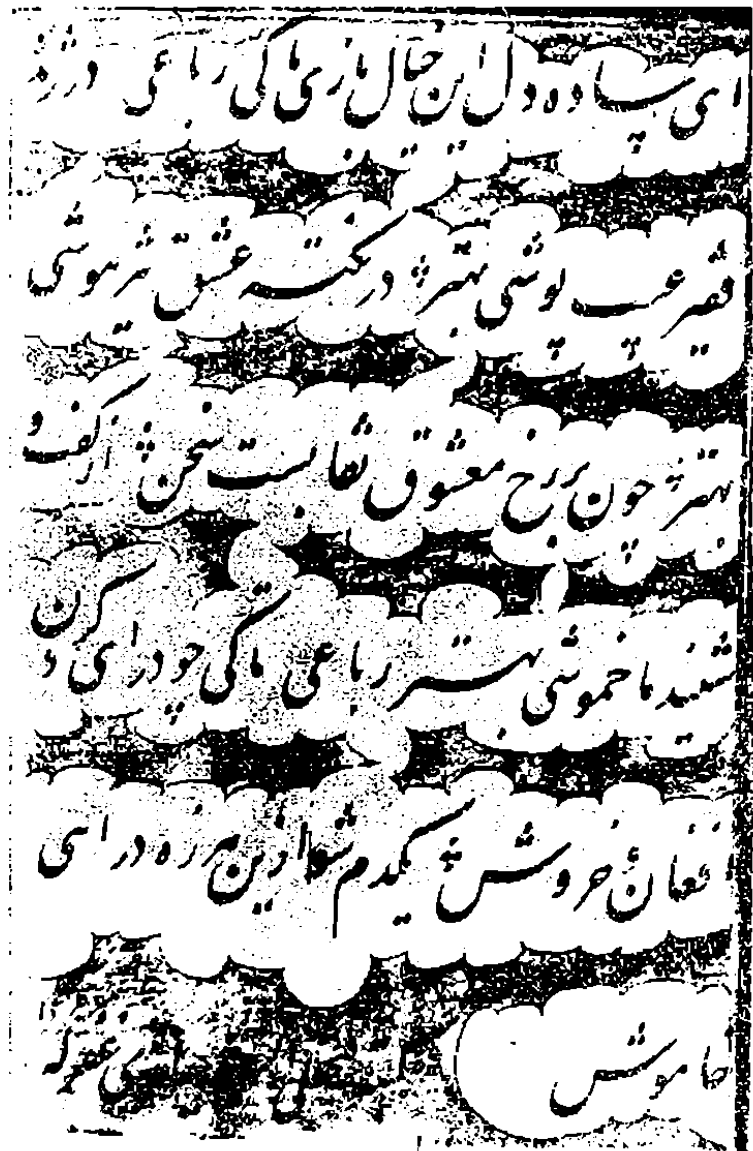 ای ساده دل این خیال بازی تا کی رباعی در ژنده
فقر عیب پوشی بهتر در نکته عشق تیز هوشی
بهتر چون بر رخ معشوق نقابست سخن از گفت و
شنید ما خموشی بهتر رباعی تا کی چو درای کردن
افغان و خروش یکدم شو ازین هرزه درایی
خاموش